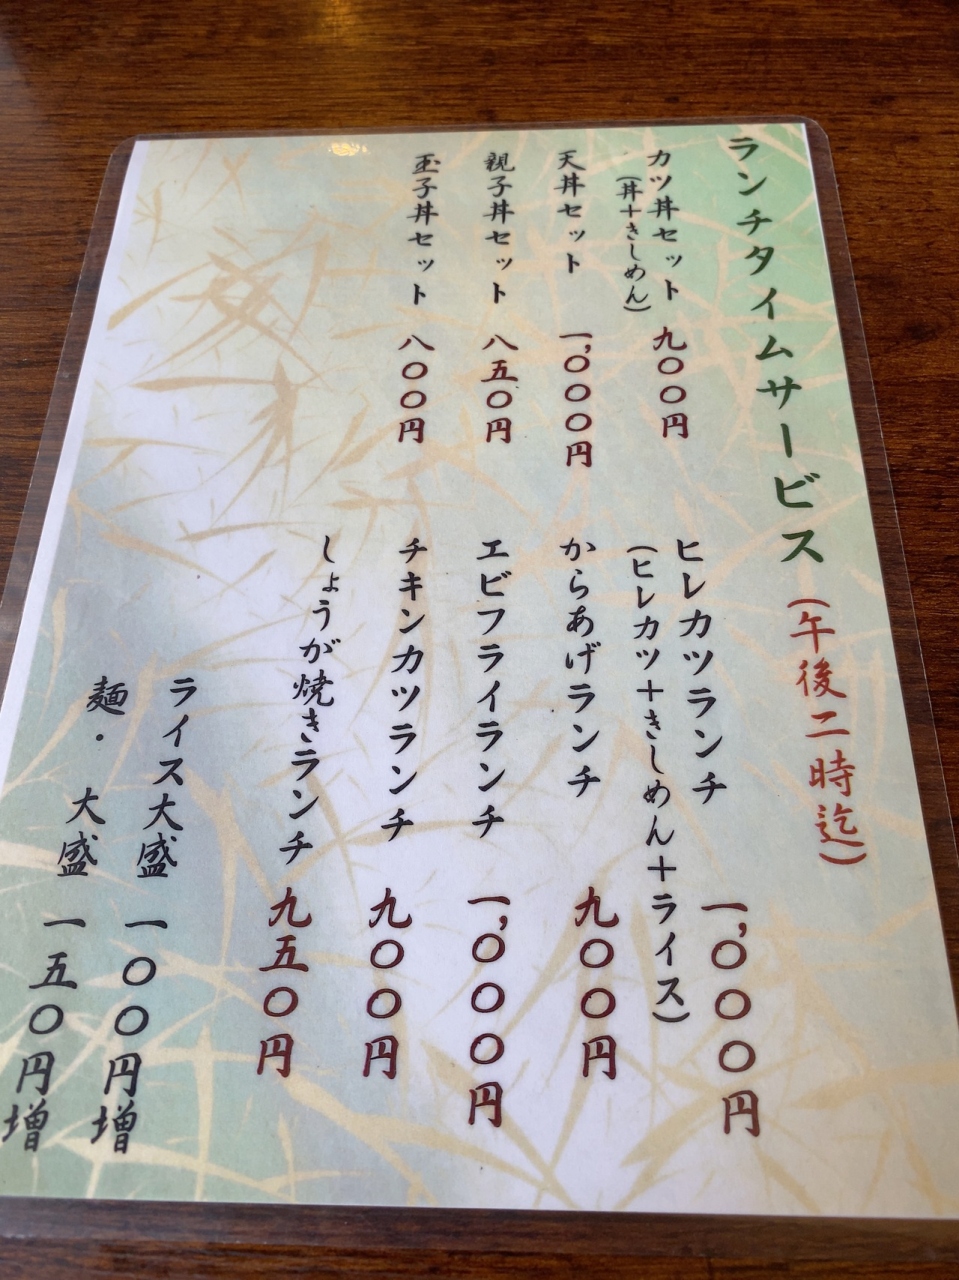 ランチタイムサービス(午後二時迄)
カツ丼セット 九〇〇円
(丼+きしめん)
天丼セット 一,〇〇〇円
親子丼セット 八五〇円
玉子丼セット 八〇〇円
ヒレカツランチ 一,〇〇〇円
(ヒレカツ+きしめん+ライス)
からあげランチ 九〇〇円
エビフライランチ 一,〇〇〇円
チキンカツランチ 九〇〇円
しょうが焼きランチ 九五〇円
ライス大盛 一〇〇円増
麺・大盛 一五〇円増